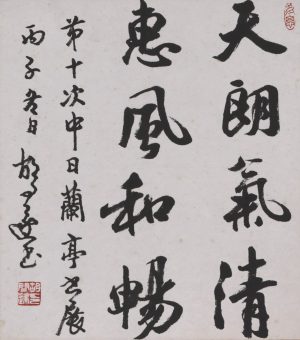 天朗氣清
惠風和暢
第十次中日蘭亭书展
丙子春日